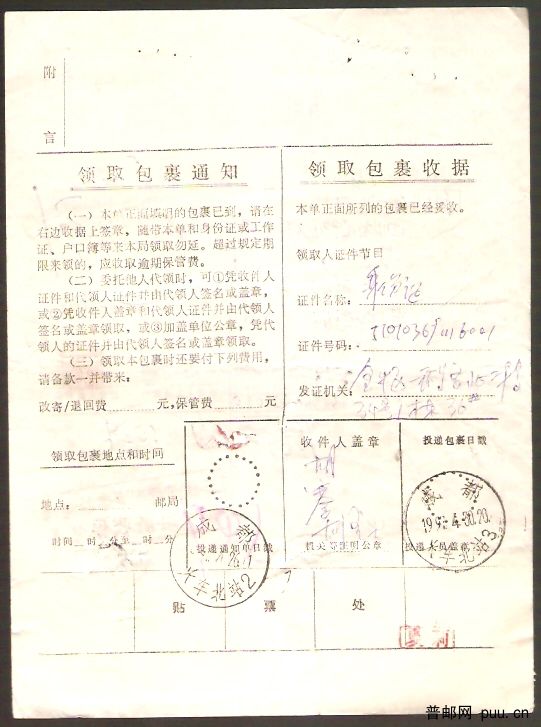 附
言
领取包裹通知
(一)本单正面填明的包裹已到,请在
右边收据上签章,随带本单和身份证或工作
证、户口簿等来本局领取勿延。超过规定期
限来领的,应收取逾期保管费。
(二)委托他人代领时,可①凭收件人
证件和代领人证件并由代领人签名或盖章,
或②凭收件人盖章和代领人证件并由代领人
签名或盖章领取,或③加盖单位公章,凭代
领人的证件并由代领人签名或盖章领取。
(三)领取本包裹时还要付下列费用,
请备款一并带来:
改寄/退回费 元,保管费 元
领取包裹收据
本单正面所列的包裹已经妥收。
领取人证件节目
证件名称:
证件号码:
发证机关:
领取包裹地点和时间
地点: 邮局
时间 时 分至 时 分
投递通知单日戳
成都
收件人盖章
胡
机关等证明公章
投递包裹日戳
投递人员盖章
成都
贴 票 处
普邮网 puu.cn